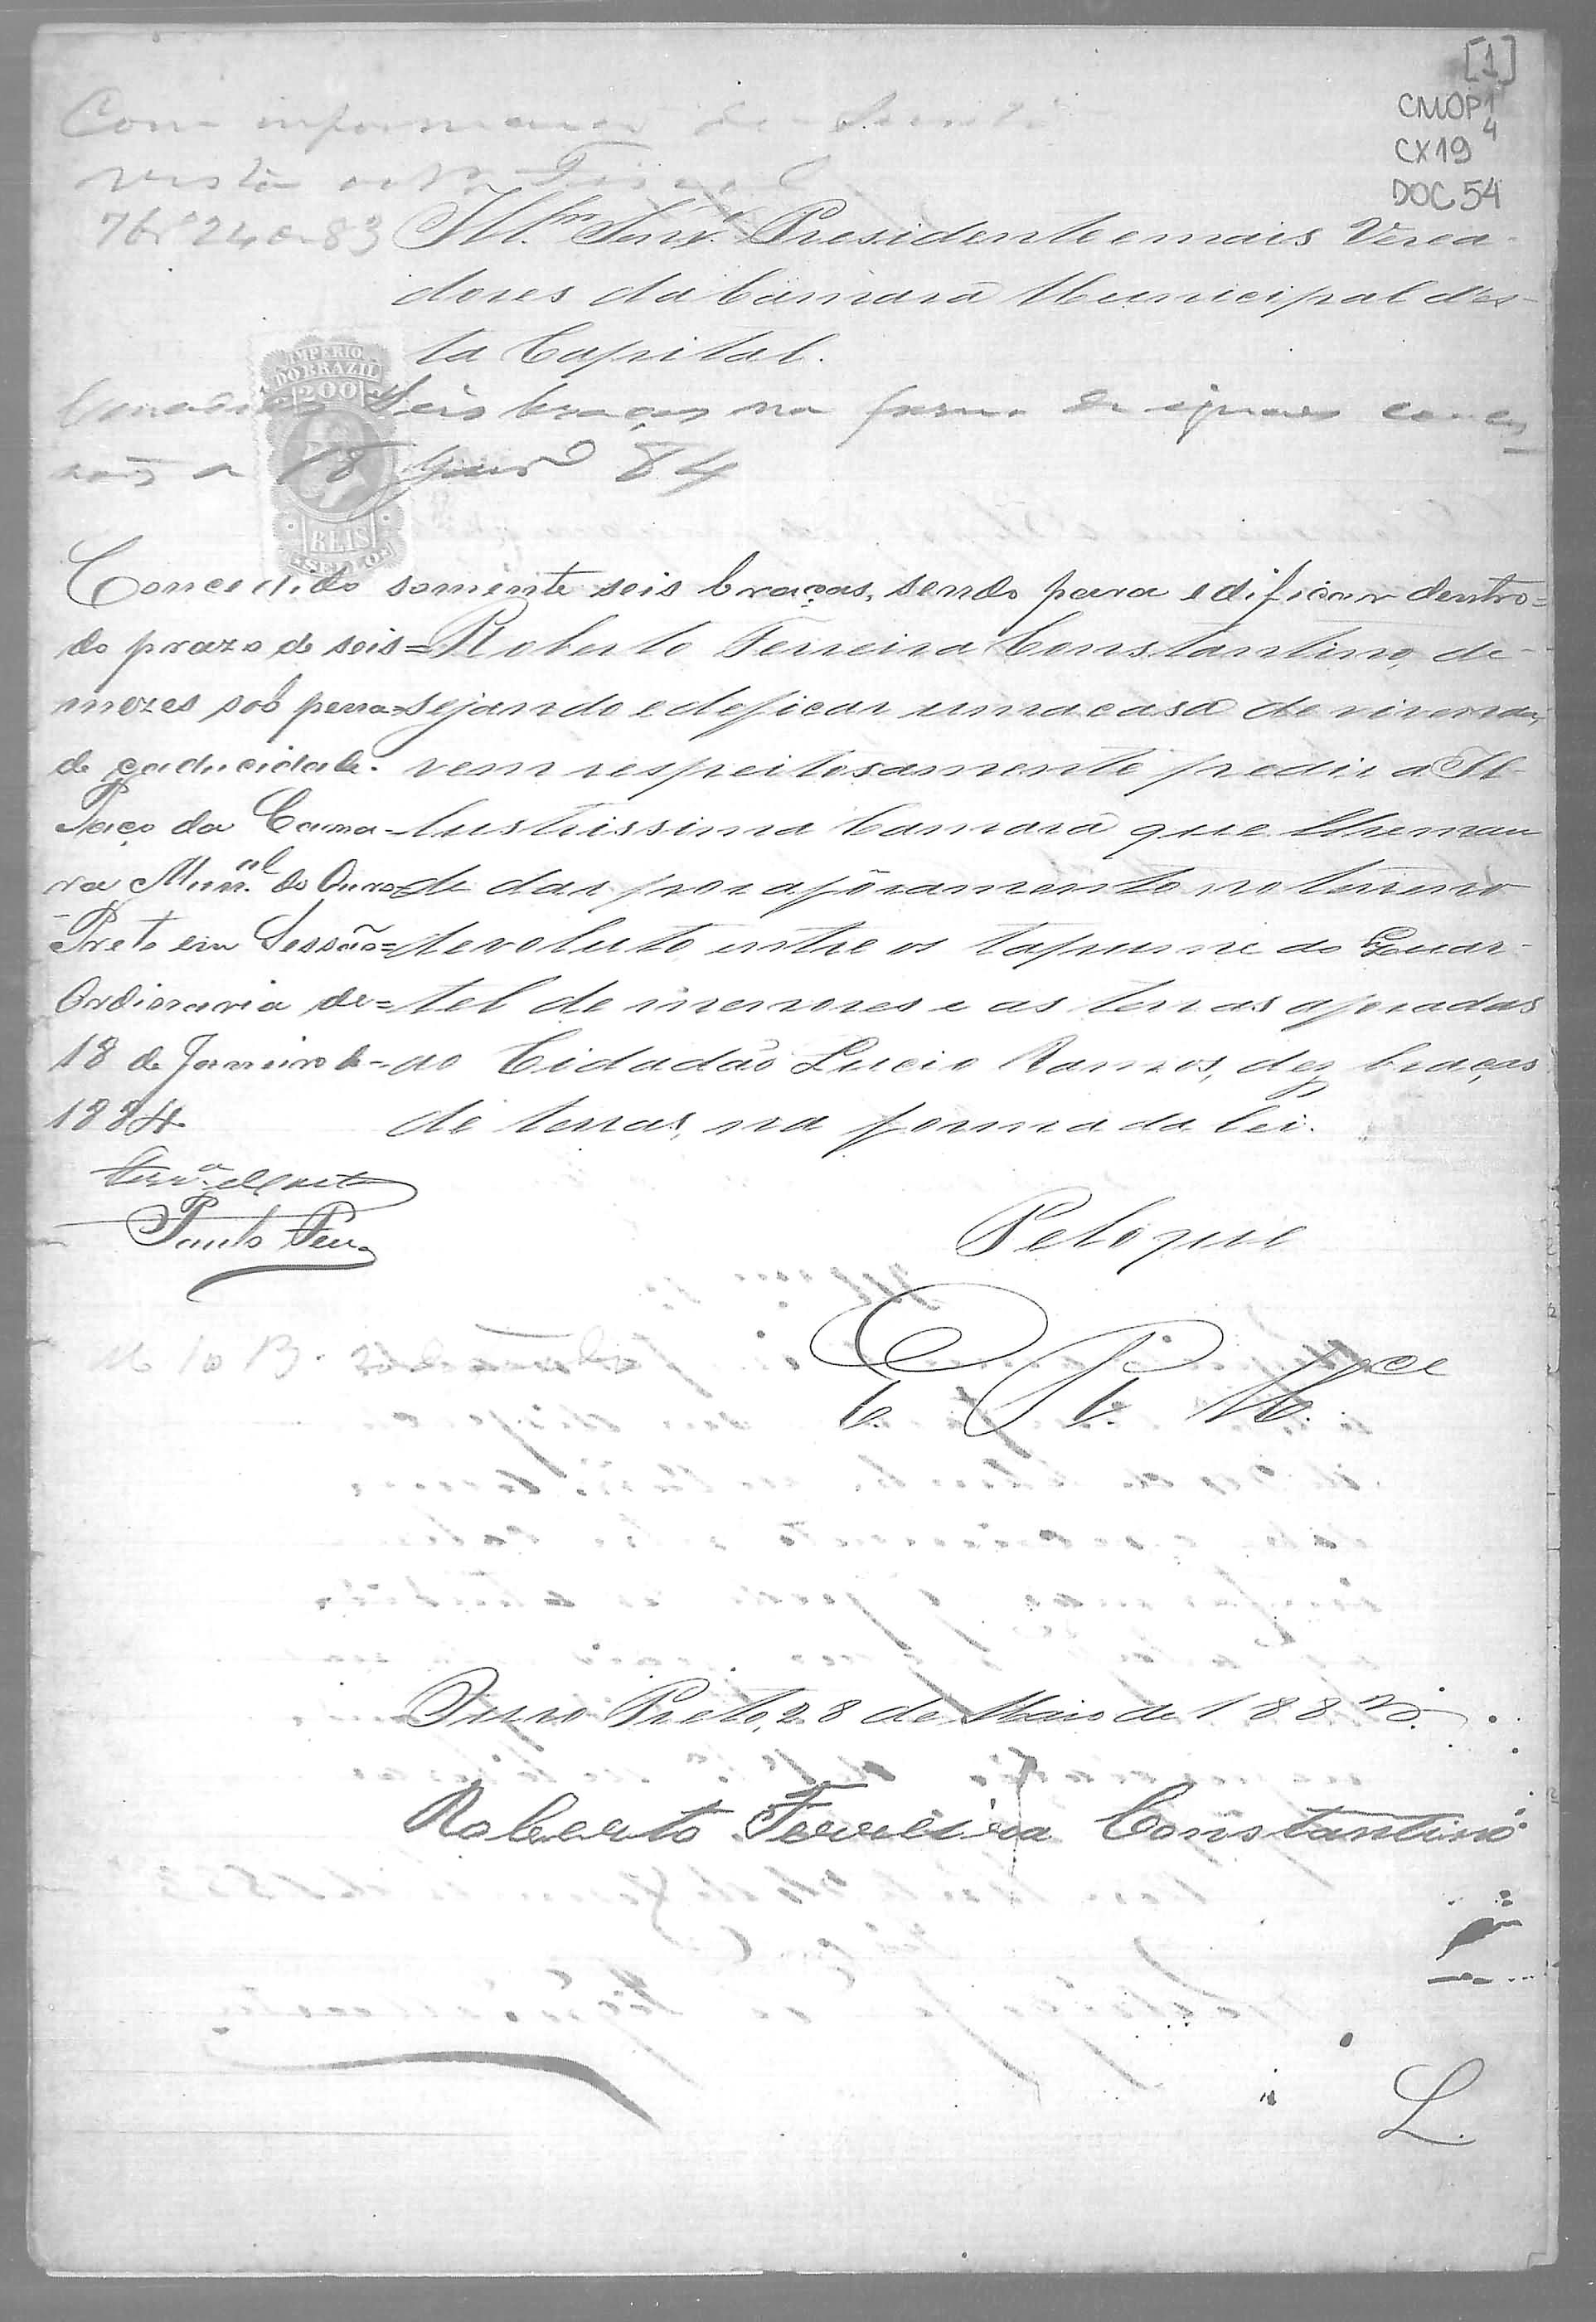 [1]
CMOP1
4
CX19
DOC 54
Com informação do
vista ao Sr. Fiscal
7br.º 24 de 83
Ill.mo Senr. Presidente e mais Verea-
dores da Camara Municipal des-
ta Capital.
IMPERIO
DO BRAZIL
200
REIS
SELLO
Concedidas Seis braças na forma de iguaes conces
sões a 18 Janrº 84
Concedido somente seis braças, sendo para edificar dentro=
do prazo de seis=
mezes sob pena=
de caducidade.
Paço da Cama-
ra Mun.al do Ouro-
Preto em Sessão=
Ordinaria de=
18 de Janeiro de=
1884
Paulo
Roberto Ferreira Constantino, de-
sejando edeficar uma casa de vivenda,
vem respeitosamente pedir a Il-
lustrissima Camara que lhe man
de dar por afôramento no terreno
devoluto, entre os tapume do Quar-
tel de menores e as terras aforadas
ao Cidadão Lucio Ramos, dez braças
de terras, na forma da lei.
Pelo que
E. R. M.ce
Ouro Preto, 28 de Maio de 1883.
Roberto Ferreira Constantino
L.